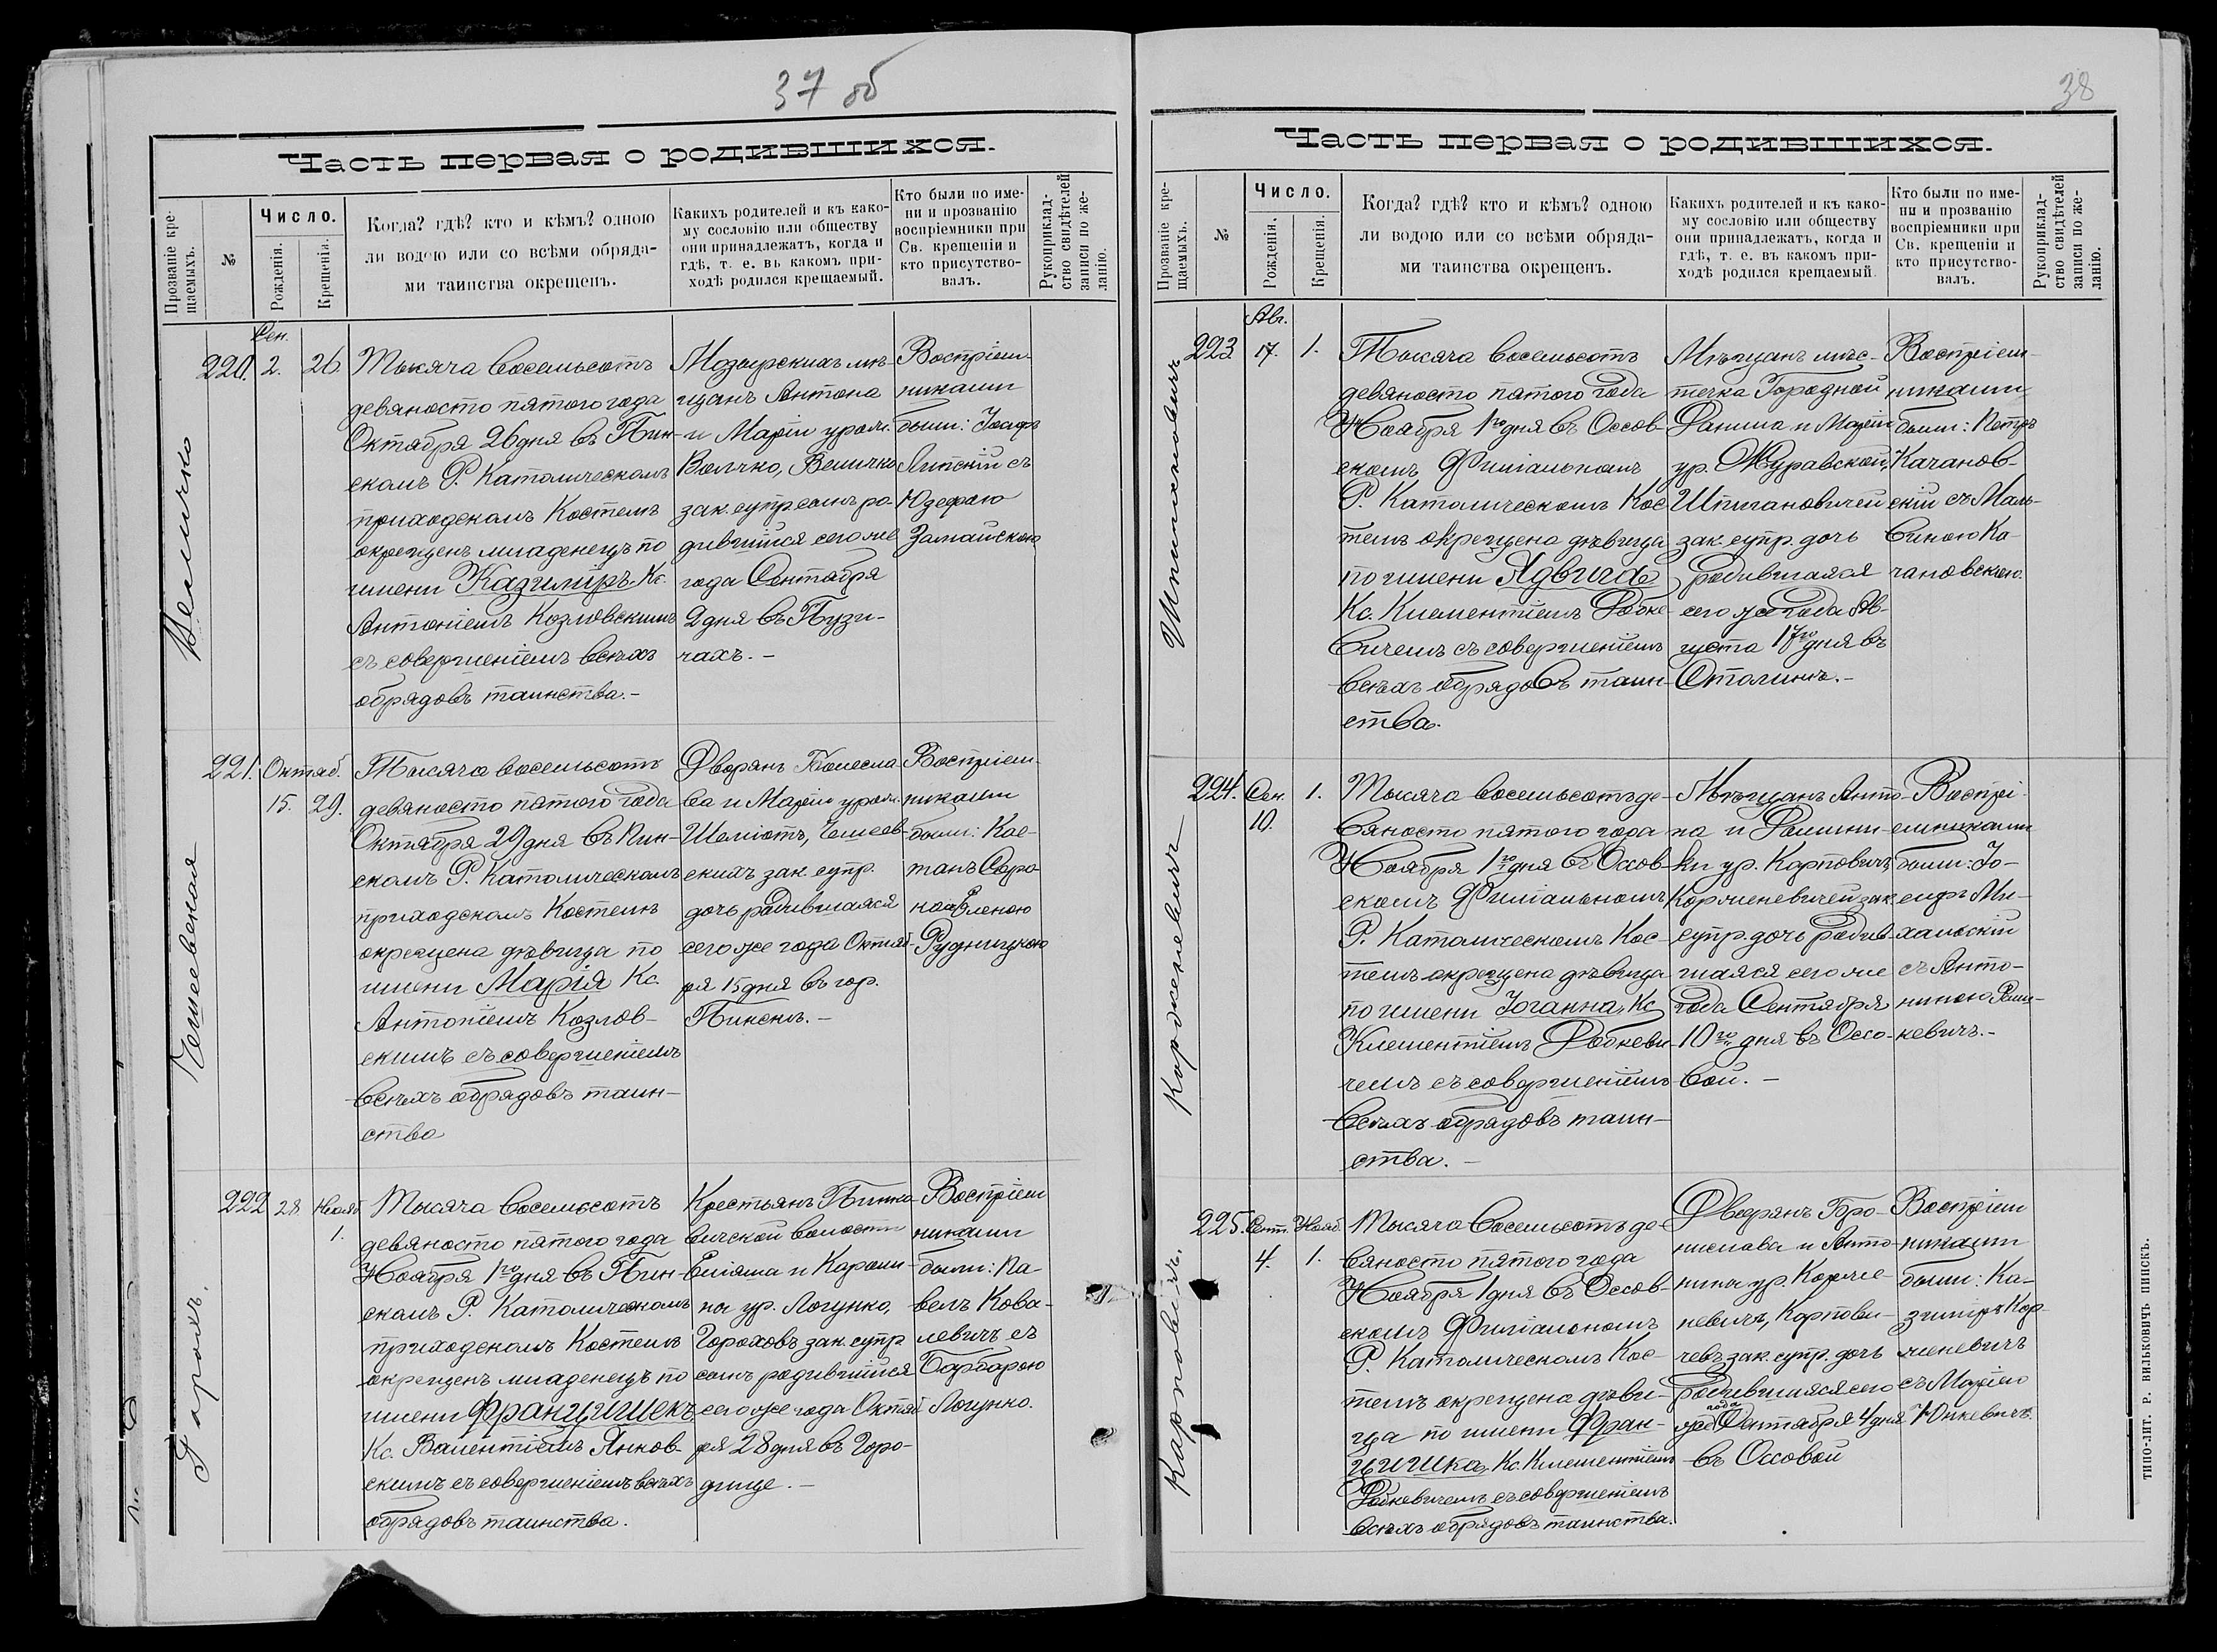 37 об
Часть первая о родившихся.
Прозваніе кре-
щаемыхъ.
№
Число.
Рожденія.
Крещенія.
Когда? гдѣ? кто и кѣмъ? одною
ли водою или со всѣми обряда-
ми таинства окрещенъ.
Какихъ родителей и къ како-
му сословію или обществу
они принадлежатъ, когда и
гдѣ, т. е. въ какомъ при-
ходѣ родился крещаемый.
Кто были по име-
ни и прозванію
воспріемники при
Св. крещеніи и
кто присутство-
валъ.
Рукоприклад-
ство свидѣтелей
записи по же-
ланію.
Величко
220.
Сен.
2.
26
Тысяча восемьсотъ
девяносто пятого года
Октября 26 дня въ Пин-
скомъ Р. Католическомъ
приходскомъ Костелѣ
окрещенъ младенецъ по
имени Казиміръ Кс.
Антоніемъ Козловскимъ
съ совершеніемъ всѣхъ
обрядовъ таинства.-
Мозырскихъ мѣ-
щанъ Антона
и Маріи урожд.
Величко
зак. супр. сынъ ро-
дившійся сего же
года Сентября
2 дня въ Пузи-
чахъ.-
Воспріем-
никами
были: Іосифъ
Липскій съ
Юзефою
Замайскою
Чешеевская
221.
Октяб.
15.
29.
Тысяча восемьсотъ
девяносто пятого года
Октября 29 дня въ Пин-
скомъ Р. Католическомъ
приходскомъ Костелѣ
окрещена дѣвица по
имени Марія Кс.
Антоніемъ Козлов-
скимъ съ совершеніемъ
всѣхъ обрядовъ таин-
ства
Дворянъ Болесла
ва и Маріи урожд.
Шеліотъ, Чешеев-
скихъ зак. супр.
дочь родившаяся
сего же года Октяб-
ря 15 дня въ гор.
Пинскѣ.-
Воспріем-
никами
были: Кае-
танъ Соро-
ка съ Еленою
Рудницкою
Горохъ.
222
28
Нояб.
1.
Тысяча восемьсотъ
девяносто пятого года
Ноября 1го дня въ Пин-
скомъ Р. Католическомъ
приходскомъ Костелѣ
окрещенъ младенецъ по
имени Францишекъ
Кс. Валентіемъ Янков-
скимъ съ совершеніемъ всѣхъ
обрядовъ таинства.
Крестьянъ Пинко
вичской волости
Еліяша и Кароли-
ны ур. Логунко,
Гороховъ зак. супр.
сынъ родившійся
сего же года Октяб
ря 28 дня въ Горо-
дище.-
Воспріем
никами
были: Па-
велъ Кова-
левичъ съ
Барбарою
Логунко.
38
Часть первая о родившихся.
Прозваніе кре-
щаемыхъ.
№
Число.
Рожденія.
Крещенія.
Когда? гдѣ? кто и кѣмъ? одною
ли водою или со всѣми обряда-
ми таинства окрещенъ.
Какихъ родителей и къ како-
му сословію или обществу
они принадлежатъ, когда и
гдѣ, т. е. въ какомъ при-
ходѣ родился крещаемый.
Кто были по име-
ни и прозванію
воспріемники при
Св. крещеніи и
кто присутство-
валъ.
Рукоприклад-
ство свидѣтелей
записи по же-
ланію.
223
Авг.
17.
1.
Тысяча восемьсотъ
девяносто пятого года
Ноября 1го дня въ Оссов-
скомъ Филіальномъ
Р. Католическомъ Кос
телѣ окрещена дѣвица
по имени Ядвига
Кс. Климентіемъ Робке-
вичемъ съ совершеніемъ
всѣхъ обрядовъ таин-
ства.
Мѣщанъ мѣс-
течка Городной
Данила и Маріи
ур. Журавской,
зак. супр. дочь
родившаяся
сего же года Ав-
густа 17го дня въ
Столинѣ.-
Воспріем-
никами
были: Петръ
Качанов-
скій съ Маль-
виною Ка-
чановскою.
Корженевичъ
224.
Сен.
10.
1.
Тысяча восемьсотъ де-
вяносто пятого года
Ноября 1го дня въ Оссов-
скомъ Филіальномъ
Р. Католическомъ Кос-
телѣ окрещена дѣвица
по имени Іоганна, Кс
Климентіемъ Робкеви-
чемъ съ совершеніемъ
всѣхъ обрядовъ таин-
ства.-
Мѣщанъ Анто-
на и Домини-
ки ур. Карповичъ,
Корженевичей зак.
супр. дочь родив-
шаяся сего же
года Сентября
10го дня въ Оссо-
вой.-
Воспрі-
емниками
были: Іо-
сифъ Ми-
хальскій
съ Анто-
ниною
кевичъ.-
Карповичъ.
225.
Сент.
4.
Нояб.
1.
Тысяча восемьсотъ де-
вяносто пятого года
Ноября 1 дня въ Оссов-
скомъ Филіальномъ
Р. Католическомъ Кос-
телѣ окрещена дѣви-
ца по имени Фран-
цишка, Кс. Климентіемъ
Робкевичемъ съ совершеніемъ
всѣхъ обрядовъ таинства.
Дворянъ Бро-
нислава и Анто-
нины ур. Корже-
невичъ, Карпови-
чевъ зак. супр. дочь
родившаяся сего
же года Сентября 4 дня
въ Оссовой
Воспріем
никами
были: Ка-
зиміръ Кор-
женевичъ
съ Маріею
Юшкевичъ.
ТИПО-ЛИТ. Р. ВИЛЬКОВИЧЪ ПИНСКЪ.